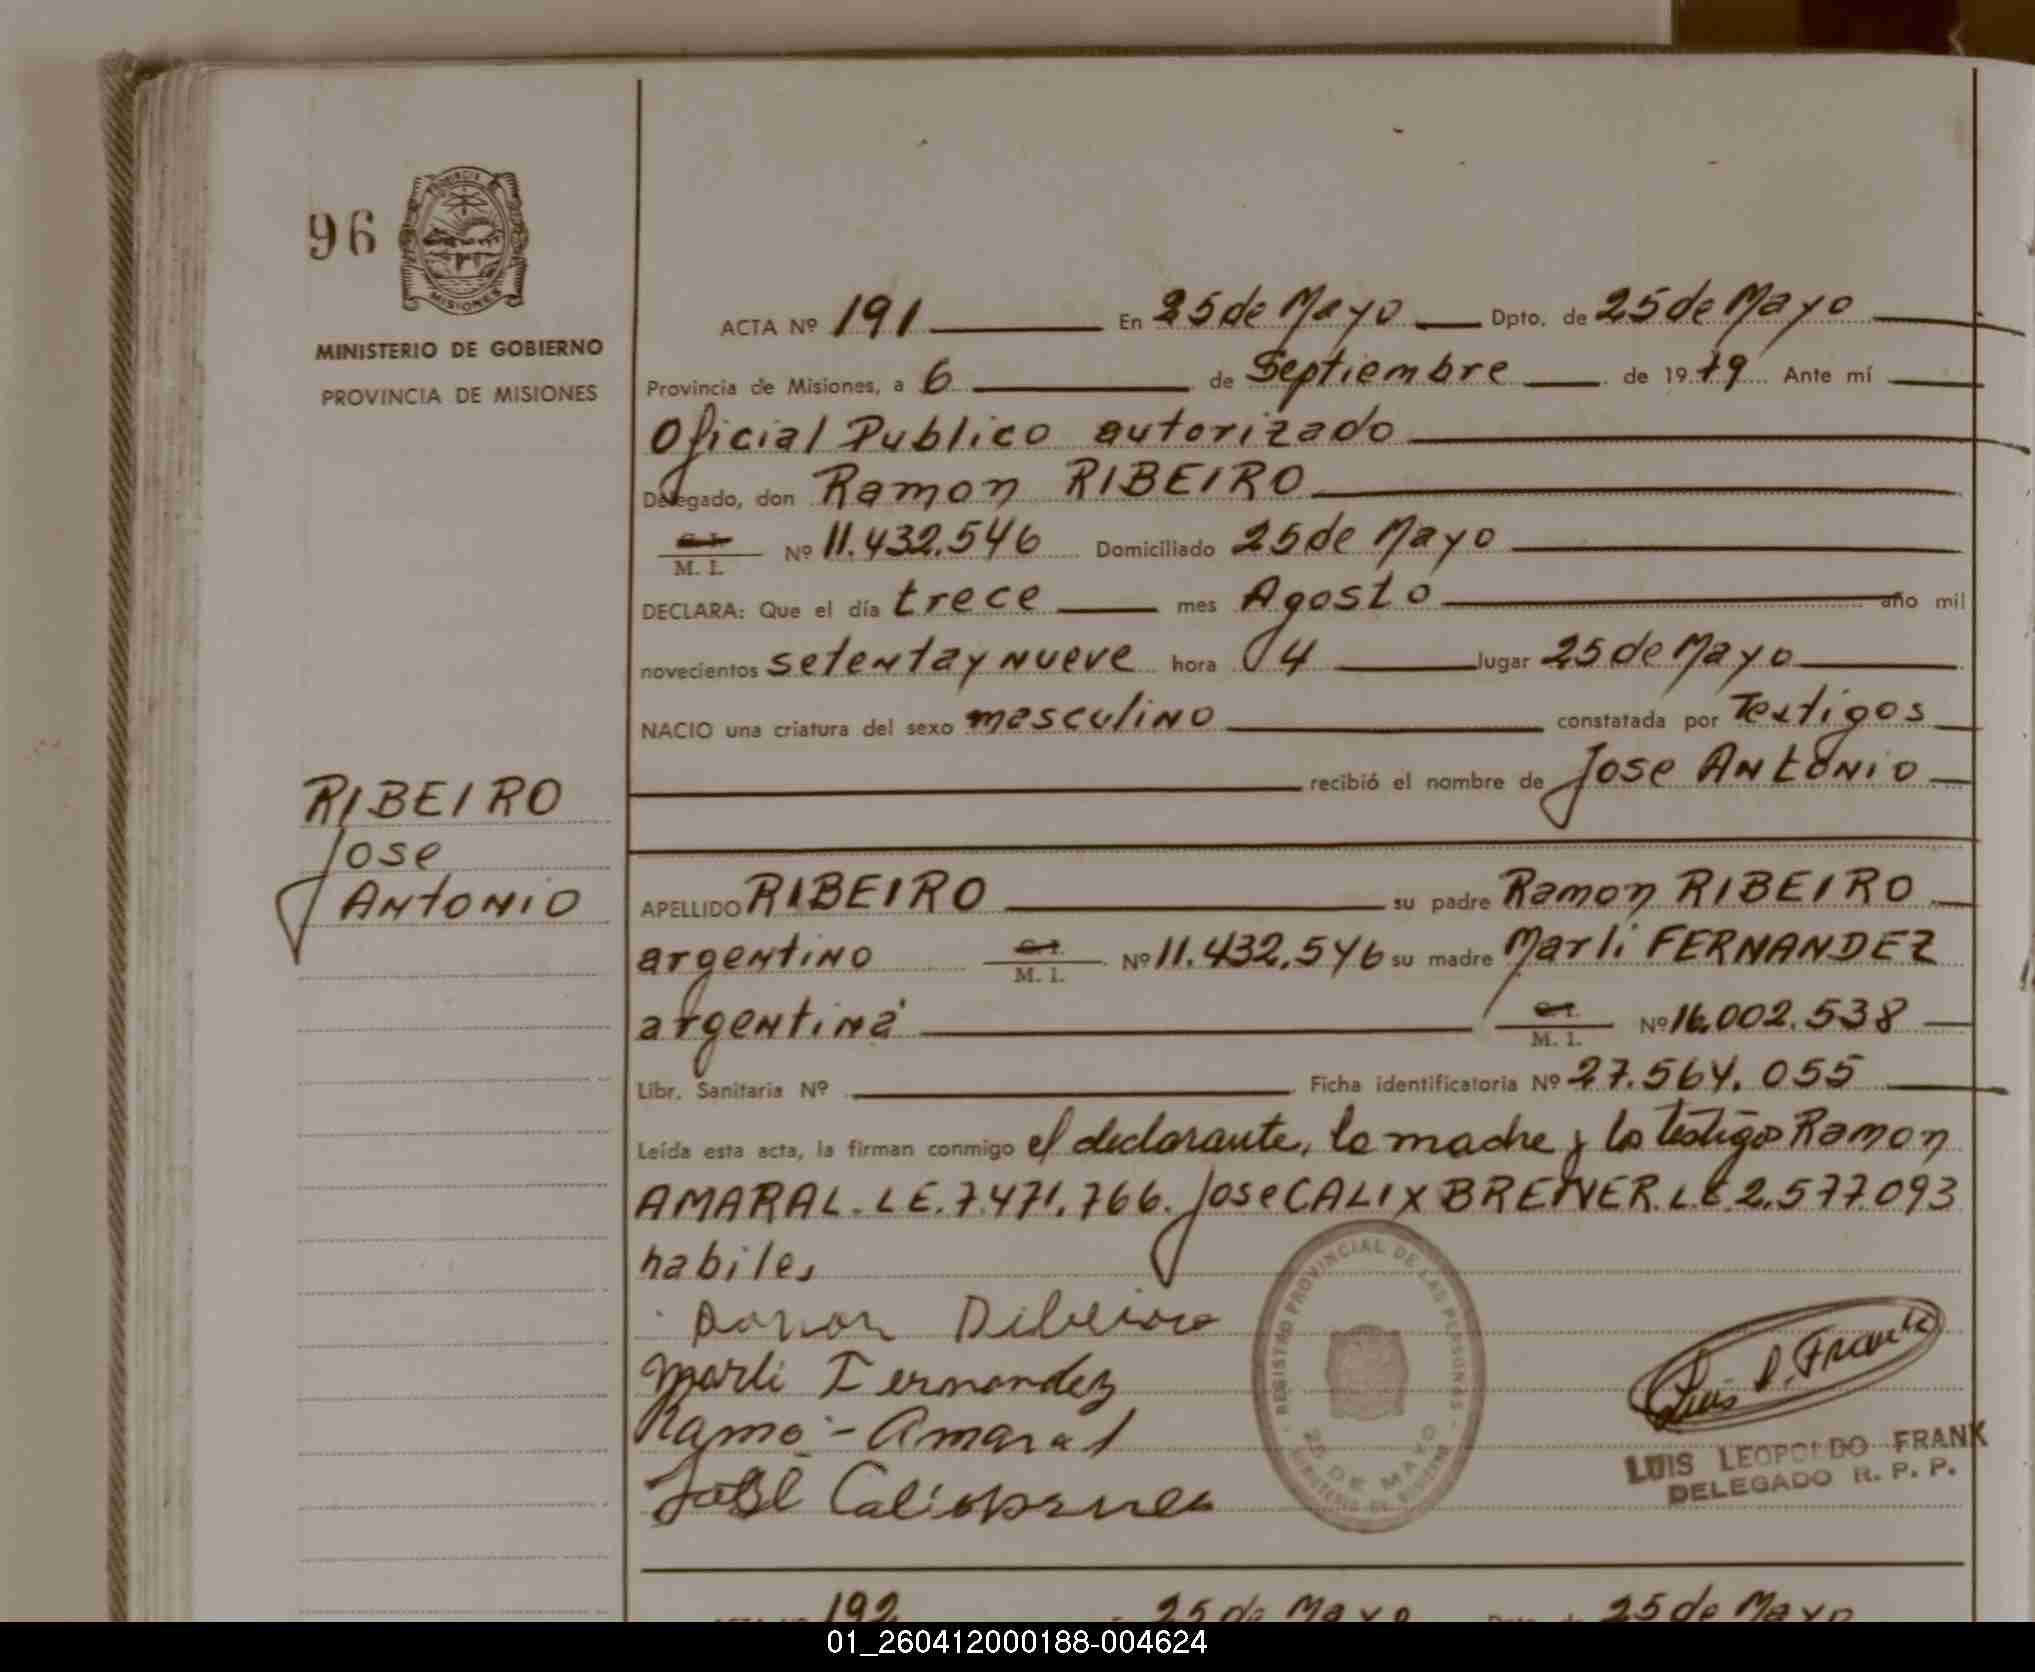 96
PROVINCIA
MISIONES
MINISTERIO DE GOBIERNO
PROVINCIA DE MISIONES
ACTA Nº 191 En 25 de Mayo Dpto. de 25 de Mayo
Provincia de Misiones, a 6 de Septiembre de 1979 Ante mí
Oficial Publico autorizado
Delegado, don Ramon RIBEIRO
C. I.
M. I. Nº 11.432.546 Domiciliado 25 de Mayo
DECLARA: Que el día trece mes Agosto año mil
novecientos setenta y nueve hora 04 lugar 25 de Mayo
NACIO una criatura del sexo masculino constatada por Testigos
recibió el nombre de Jose Antonio
RIBEIRO
Jose
Antonio
APELLIDO RIBEIRO su padre Ramon RIBEIRO
argentino C. I. M. I. Nº 11.432.546 su madre Marli FERNANDEZ
argentina C. I. M. I. Nº 16.002.538
Libr. Sanitaria Nº Ficha identificatoria Nº 27.564.055
Leída esta acta, la firman conmigo el declarante, la madre y los testigos Ramon
AMARAL. LE. 7.471.766. Jose CALIX BREINER. L.E. 2.577.093
habiles
Marli Fernandez
Ramo - Amaral
José
REGISTRO PROVINCIAL DE LAS PERSONAS
25 DE MAYO
Luis L. Frank
LUIS LEOPOLDO FRANK
DELEGADO R. P. P.
192 25 de Mayo 25 de Mayo
01_260412000188-004624